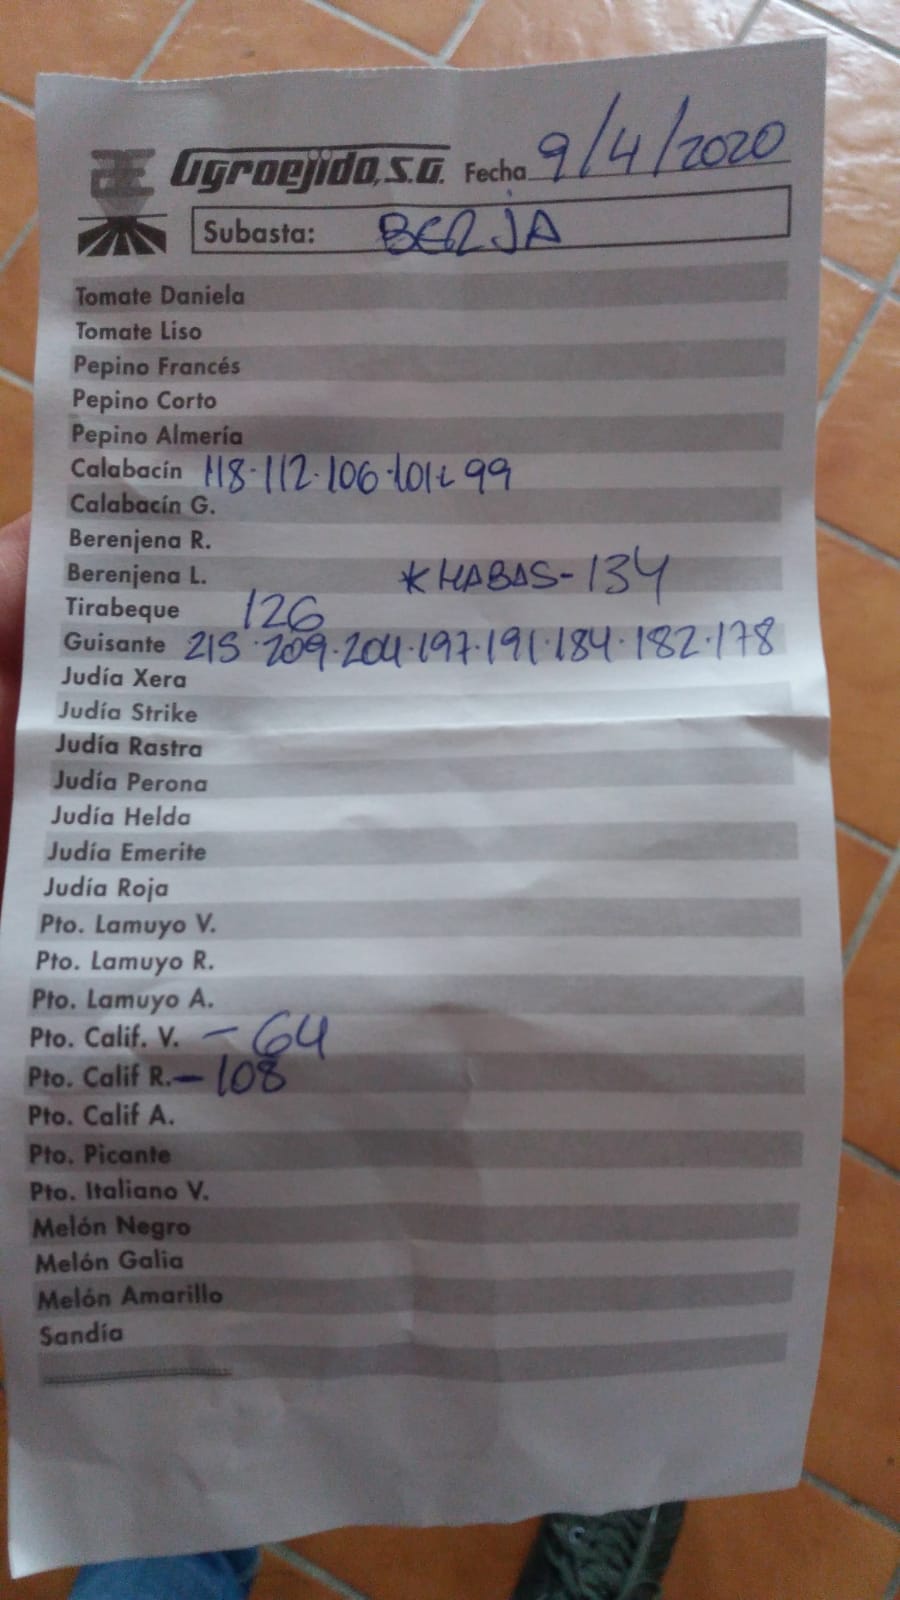 Agroejido, S.A. Fecha 9/4/2020
Subasta: BERJA
Tomate Daniela
Tomate Liso
Pepino Francés
Pepino Corto
Pepino Almería
Calabacín 118·112·106·101·99
Calabacín G.
Berenjena R.
Berenjena L. * HABAS-134
Tirabeque 126
Guisante 215·209·204·197·191·184·182·178
Judía Xera
Judía Strike
Judía Rastra
Judía Perona
Judía Helda
Judía Emerite
Judía Roja
Pto. Lamuyo V.
Pto. Lamuyo R.
Pto. Lamuyo A.
Pto. Calif. V. - 64
Pto. Calif R. - 108
Pto. Calif A.
Pto. Picante
Pto. Italiano V.
Melón Negro
Melón Galia
Melón Amarillo
Sandía